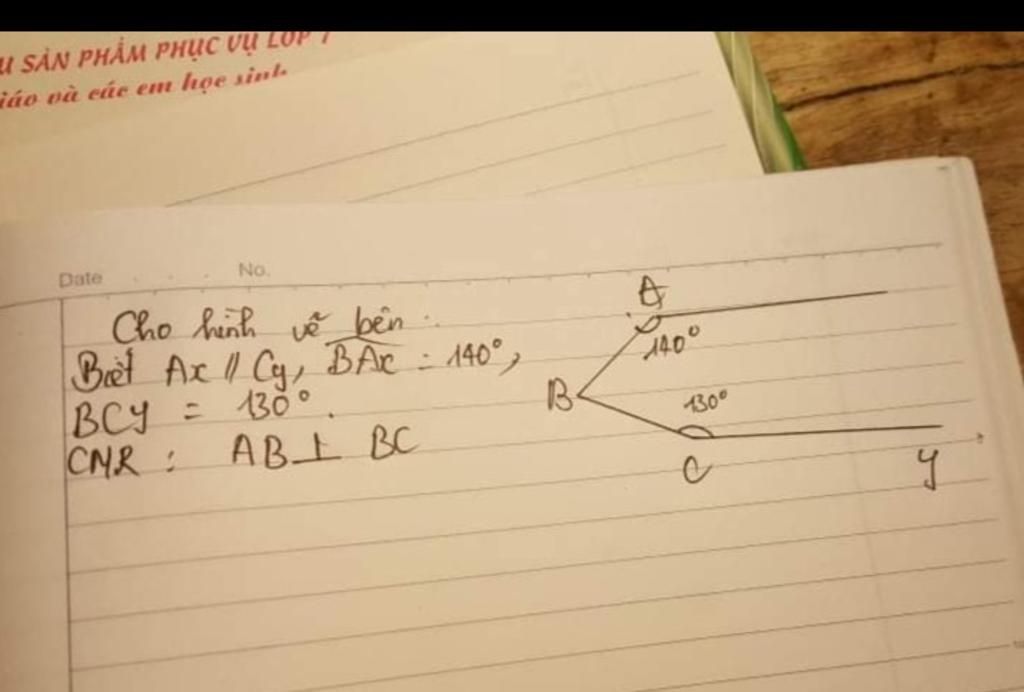 U SẢN PHẨM PHỤC VỤ LỚP 1
iáo và các em học sinh
Date . . . No.
Cho hình vẽ bên :
Biết Ax // Cy, BAx = 140°,
BCy = 130°.
CMR : AB ⊥ BC
A
140°
B
130°
C
y